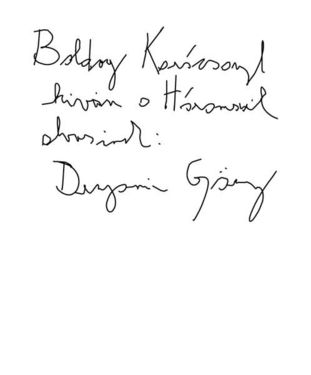 Boldog Karácsonyt
kíván a Háromszék
olvasóinak:
György